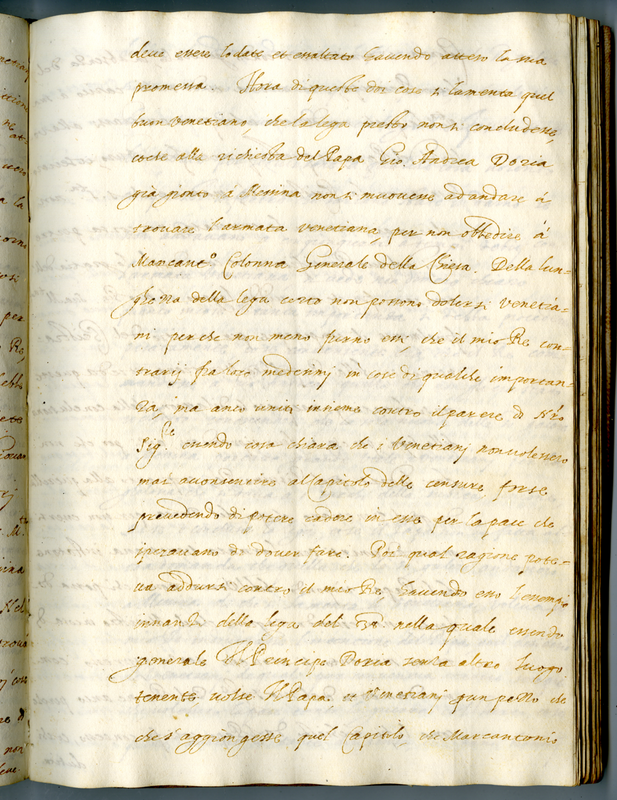 deve essere lodato et essaltato havendo atteso la sua
promessa Hora di queste doi cose si lamenta quel
buon Venetiano, che la lega presto non si concludesse,
et che alla richiesta del Papa Gio. Andrea Doria
già gionto à Messina non si movesse ad andare à
trovare l'armata venetiana, per non obbedire à
Marcant.º Colonna Generale della Chiesa. Della lun-
ghezza della lega certo non possono dolersi Venetia-
ni perche non meno furno essi, che il mio Re con-
trarij fra loro medesmi in cose di qualche importan-
za, ma anco uniti insieme contro il parere di N'ro
Sig.re essendo cosa chiara che i Venetiani non volessero
mai acconsentire al Capitolo delle censure, forse
prevedendo di potere cadere in esse per la pace che
speravano di dover fare. Poi qual ragione pote-
va addursi contro il mio Re, havendo esso l'essempio
innanti della lega del 37 nella quale essendo
generale Il Principe Doria senza altro luogo
tenente volse Il Papa, et Venetiani che
che s'aggiongesse quel Capitolo, che Marcantonio